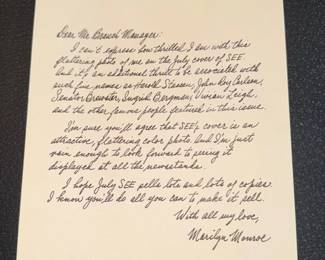 Dear Mr Branch Manager:
I can't express how thrilled I am with this
flattering photo of me on the July cover of SEE.
And it's an additional thrill to be associated with
such fine names as Harold Stassen, John Roy Carlson,
Senator Brewster, Ingrid Bergman, Vivian Leigh,
and the other famous people featured in this issue.
I'm sure you'll agree that SEE's cover is an
attractive, flattering color photo. And I'm just
vain enough to look forward to seeing it
displayed at all the newsstands.
I hope July SEE sells lots and lots of copies.
I know you'll do all you can to make it sell.
With all my love,
Marilyn Monroe